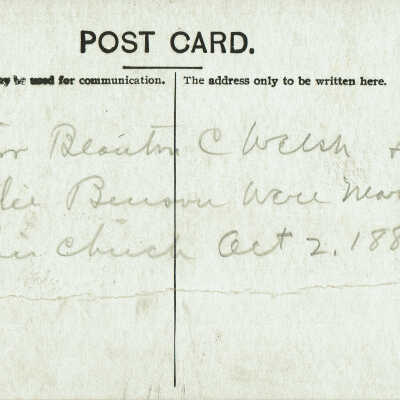 POST CARD.
may be used for communication. The address only to be written here.
Blanton C Welsh &
Benson Were Mar
church Oct 2, 188